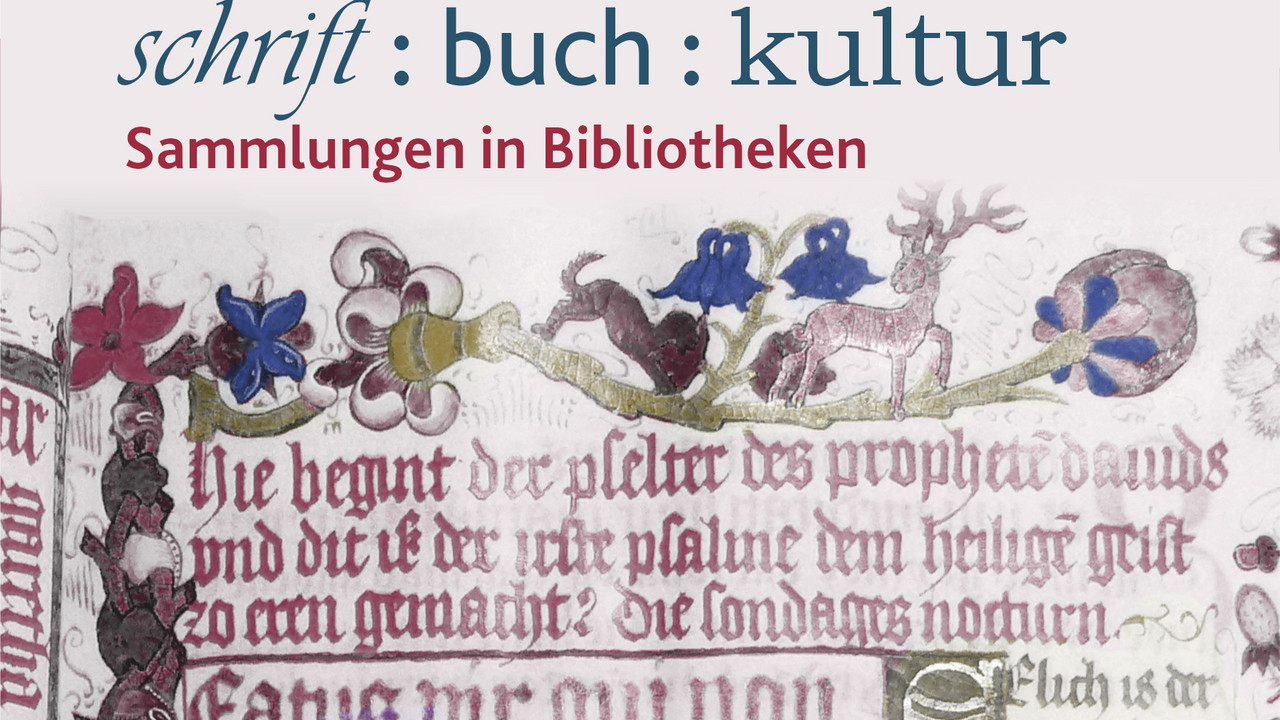 schrift : buch : kultur
Sammlungen in Bibliotheken
Hie begint der pſelter des prophetē dauids
vnd dit is der irſte pſalme dem heiligē geiſt
zo eren gemacht? Die ſondages nocturn
Eatus vir qui non
Elich is der